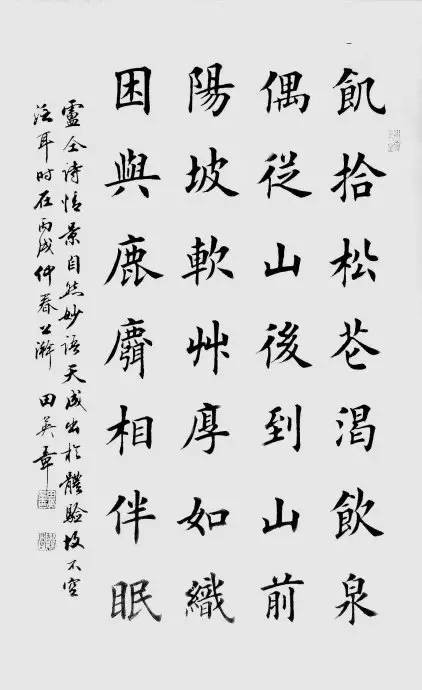 飢拾松花渴飲泉
偶從山後到山前
陽坡軟艸厚如織
困與鹿麛相伴眠
盧仝诗情景自然妙语天成出於體驗故不空
泛耳时在丙戌仲春上澣 田英章